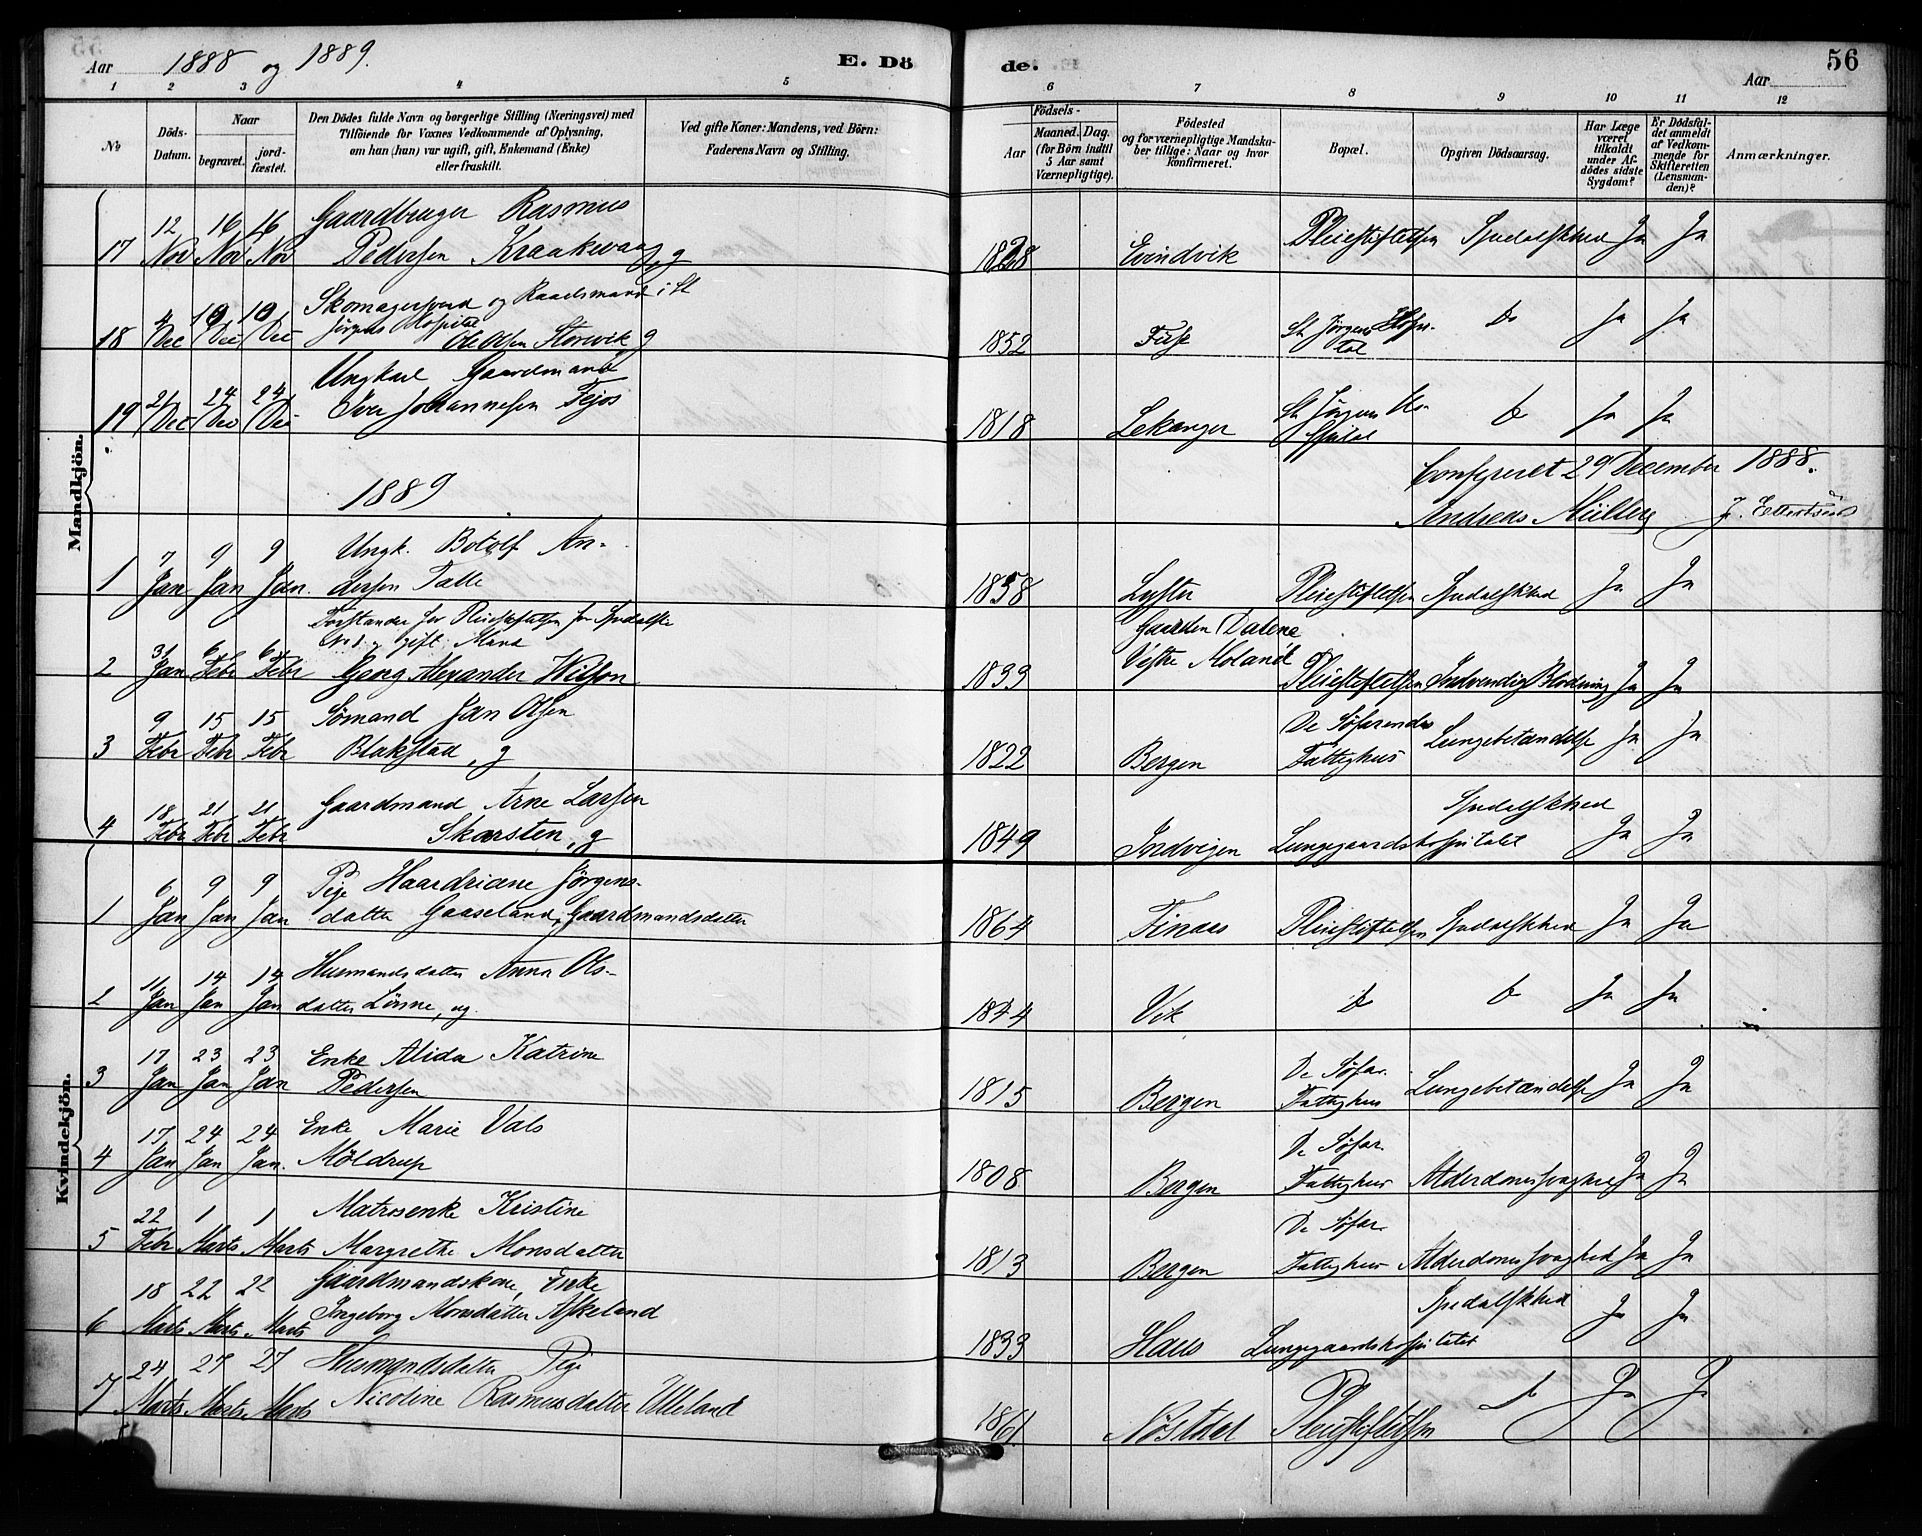 Aar 1888 og 1889.
E. Dö
de.
Aar
56
1 2 3 4 5 6 7 8 9 10 11 12
No
Döds-Datum.
Naar
begravet.
jord-fæstet.
Den Dödes fulde Navn og borgerlige Stilling (Næringsvei) med
Tilföiende for Voxnes Vedkommende af Oplysning,
om han (hun) var ugift, gift, Enkemand (Enke)
eller fraskilt.
Ved gifte Koner: Mandens, ved Börn:
Faderens Navn og Stilling.
Födsels-
Aar
Maaned. Dag.
(for Börn indtil
5 Aar samt
Værnepligtige).
Födested
og for værnepligtige Mandska-
ber tillige: Naar og hvor
konfirmeret.
Bopæl.
Opgiven Dödsaarsag.
Har Læge
været
tilkaldt
under Af-
dödes sidste
Sygdom?
Er Dödsfal-
det anmeldt
af Vedkom-
mende for
Skifteretten
(Lensman-
den)?
Anmærkninger.
Mandkjön.
17 12 Nov 16 Nov 16 Nov Gaardbruger Rasmus
Pedersen Kraakevaag, g 1828 Evindvik Pleiestiftelsen Spedalskhed Ja Ja
18 4 Dec 10 Dec 10 Dec Skomagersvend og Raadsmand i St
Jørgens Hospital
Ole Olsen Storvik g 1852 Fuse St Jørgens Hospital Do Ja Ja
19 21 Dec 24 Dec 24 Dec Ungkarl Gaardmand
Iver Johannesen Fejos 1818 Lekanger St Jørgens Hospital Do Ja Ja
1889
Confereret 29 December 1888.
Andreas Müller
1 7 Jan 9 Jan 9 Jan. Ungk. Botolf An-
dersen Talle 1858 Lyster Pleiestiftelsen Spedalskhed Ja Ja
2 31 Jan 6 Febr 6 Febr Forstander for Pleiestiftelsen for Spedalske
No 1. gift Mand
Georg Alexander Wilson 1833 Gaarden Dalene
Vestre Moland Pleiestiftelsen Indvendig Blødning Ja Ja
3 9 Febr 15 Febr 15 Febr Sømand Jan Olsen
Blakstad, g 1822 Bergen De Søfarendes
Fattighus Lungebetændelse Ja Ja
4 18 Febr 21 Febr 21 Febr Gaardmand Arne Larsen
Skarsten, g 1849 Indvigen Lungegaardshospitalet Spedalskhed Ja Ja
Kvindekjön.
1 6 Jan 9 Jan 9 Jan Pige Haardriane Jørgens-
datter Gaaseland, Gaardmandsdatter 1864 Finaas Pleiestiftelsen Spedalskhed Ja Ja
2 11 Jan 14 Jan 14 Jan Husmandsdatter Anna Ols-
datter Lønne, ug. 1844 Vik Do Do Ja Ja
3 17 Jan 23 Jan 23 Jan Enke Alida Katrine
Pedersen 1815 Bergen De Søfar.
Fattighus Lungebetændelse Ja Ja
4 17 Jan 24 Jan 24 Jan. Enke Marie Vals
Møldrup 1808 Bergen De Søfar.
Fattighus Alderdomssvaghed Ja Ja
5 22 Febr 1 Marts 1 Marts Matrosenke Kristine
Margrethe Monsdatter 1813 Bergen De Søfar.
Fattighus Alderdomssvaghed Ja Ja
6 18 Marts 22 Marts 22 Marts Gaardmandskone, Enke
Ingeborg Monsdatter Askeland 1833 Haus Lungegaardshospitalet Spedalskhed Ja Ja
7 24 Marts 27 Marts 27 Marts Husmandsdatter Pige
Nicoline Rasmusdatter Ulleland 1861 Pleiestiftelsen Do Ja Ja